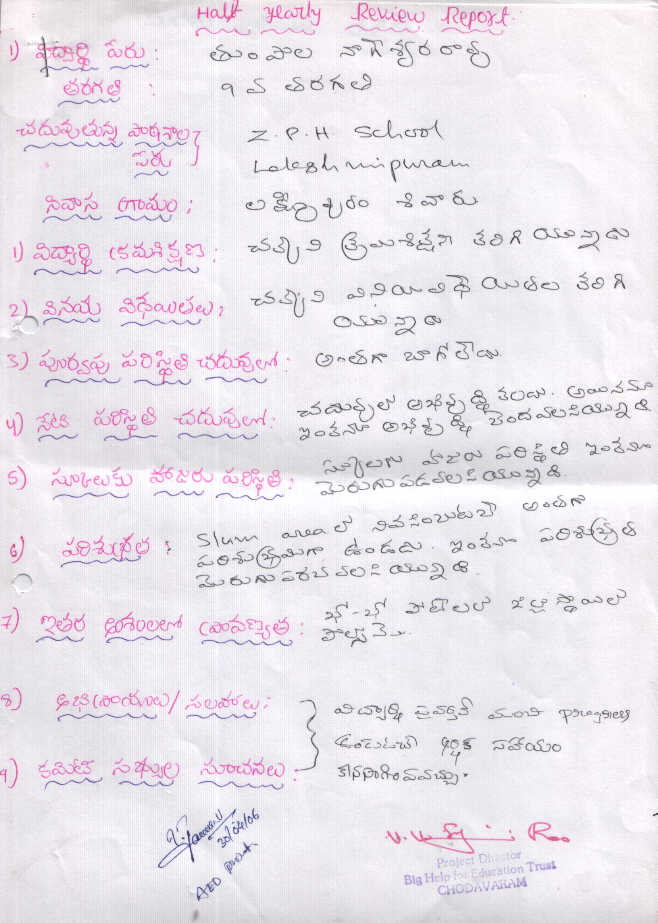 Half Yearly Review Report.
1) విద్యార్థి పేరు : తుంపాల నాగేశ్వర రావు
తరగతి : 9 వ తరగతి
చదువుతున్న పాఠశాల పేరు : Z.P.H School
Lakshmipuram
నివాస గ్రామం : లక్ష్మీపురం శివారు
1) విద్యార్థి క్రమశిక్షణ : చక్కని క్రమశిక్షణ కలిగి యున్నాడు
2) వినయ విధేయతలు : చక్కని వినయ విధేయతలు కలిగి
యున్నాడు
3) పూర్వపు పరిస్థితి చదువులో : అంతగా బాగోలేదు.
4) నేటి పరిస్థితి చదువులో : చదువులో అభివృద్ధి కలదు. అయినను
ఇంకనూ అభివృద్ధి చెందవలసియున్నది
5) స్కూలుకు హాజరు పరిస్థితి : స్కూలుకు హాజరు పరిస్థితి ఇంకనూ
మెరుగుపడవలసియున్నది.
6) పరిశుభ్రత : Slum area లో నివసించుటచే అంతగా
పరిశుభ్రముగా ఉండడు. ఇంకనూ పరిశుభ్రత
మెరుగుపరచవలసియున్నది.
7) ఇతర అంశంలలో ప్రావీణ్యత : ఖో-ఖో పోటీలలో జిల్లా స్థాయిలో
8) అభిప్రాయాలు/ సలహాలు : విద్యార్థి ప్రవర్తన మంచి progress
ఉండుటచే ఆర్థిక సహాయం
9) కమిటీ సభ్యుల సూచనలు : కొనసాగించవచ్చు.
30/04/06
AEO
Project Director
Big Help for Education Trust
CHODAVARAM